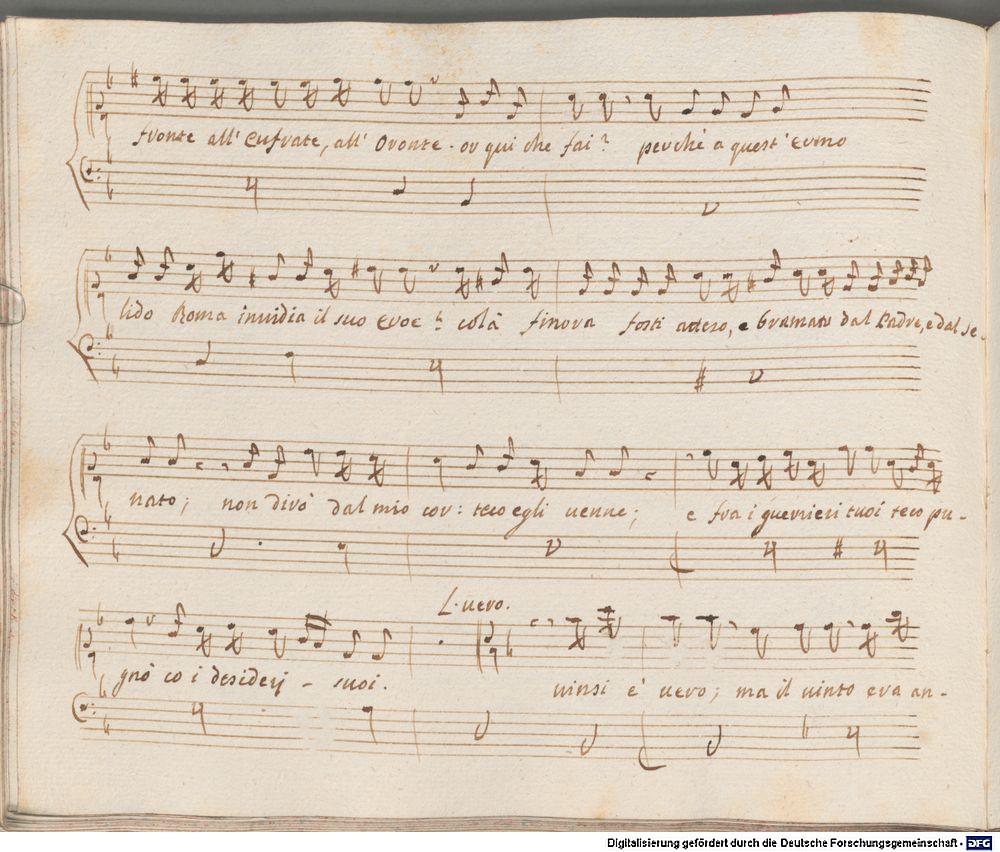 fronte all' Eufrate, all' Oronte. or qui che fai? perchè a quest' ermo
lido Roma invidia il suo Eroe? colà finora fosti atteso, e bramato dal Padre, e dal se-
nato; non dirò dal mio cor: teco egli venne; e fra i guerrieri tuoi teco pu-
L. vero.
gnò co i desiderj - suoi. vinsi è vero; ma il vinto era an-
Digitalisierung gefördert durch die Deutsche Forschungsgemeinschaft - DFG